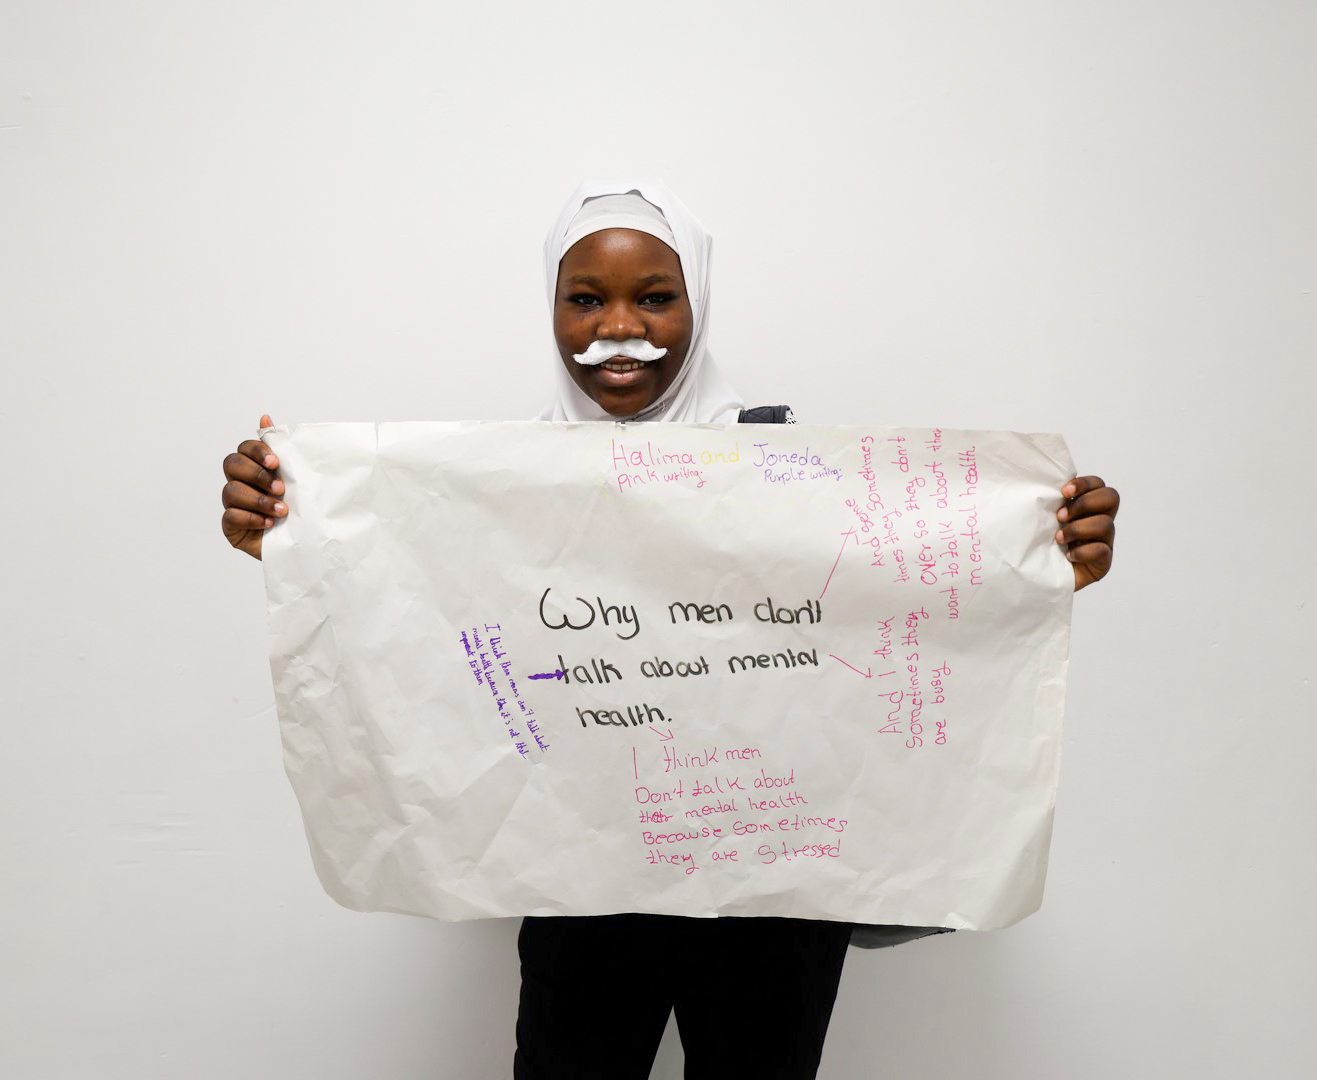 Halima and Joneda
pink writing: Purple writing:
Why men don't
talk about mental
health.
I think men
Don't talk about
their mental health
Because sometimes
they are stressed
And I think
sometimes they
are busy
And sometimes
times they don't
over so they don't
want to talk about their
mental health.
I think that mens don't talk about
mental health because like it's not that
important to them